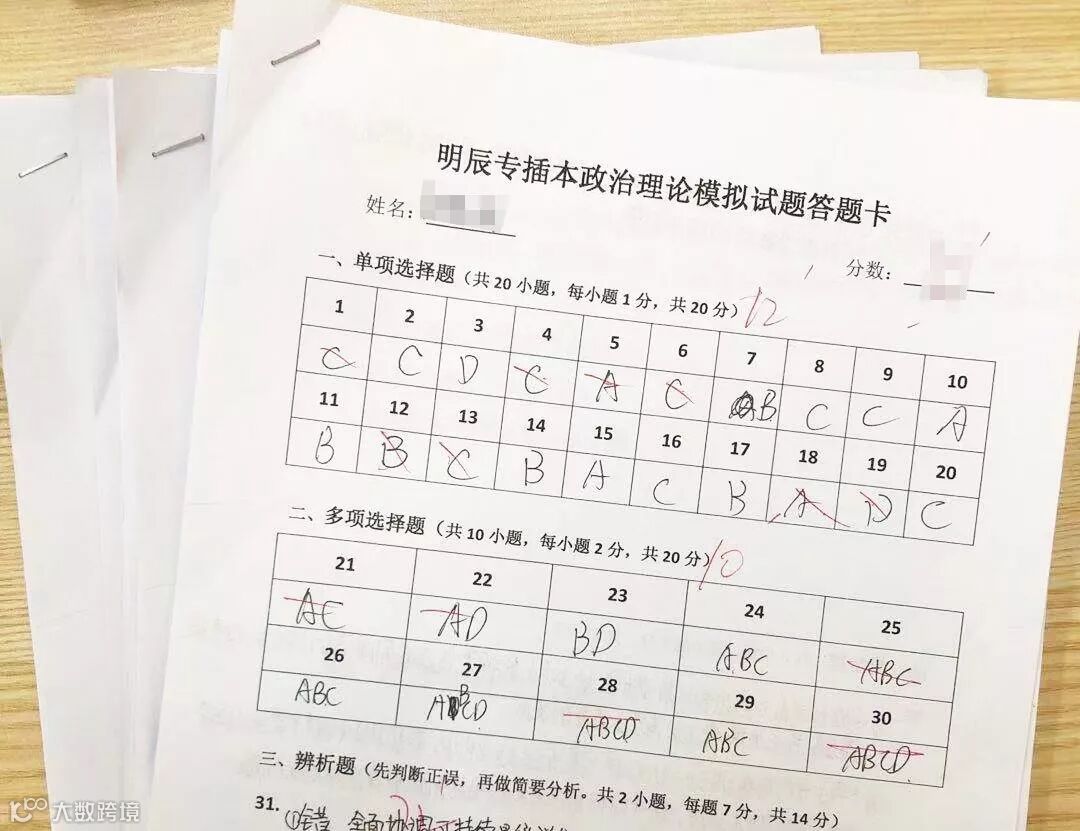 明辰专插本政治理论模拟试题答题卡
姓名：
分数：
一、单项选择题（共 20 小题，每小题 1 分，共 20 分）12
1 2 3 4 5 6 7 8 9 10
C C D C A C B C C A
11 12 13 14 15 16 17 18 19 20
B B C B A C B A D C
二、多项选择题（共 10 小题，每小题 2 分，共 20 分）10
21 22 23 24 25
AC AD BD ABC ABC
26 27 28 29 30
ABC ABCD ABCD ABC ABCD
三、辨析题（先判断正误，再做简要分析。共 2 小题，每题 7 分，共 14 分）
31.
①错 全面协调可持续是
大数跨境